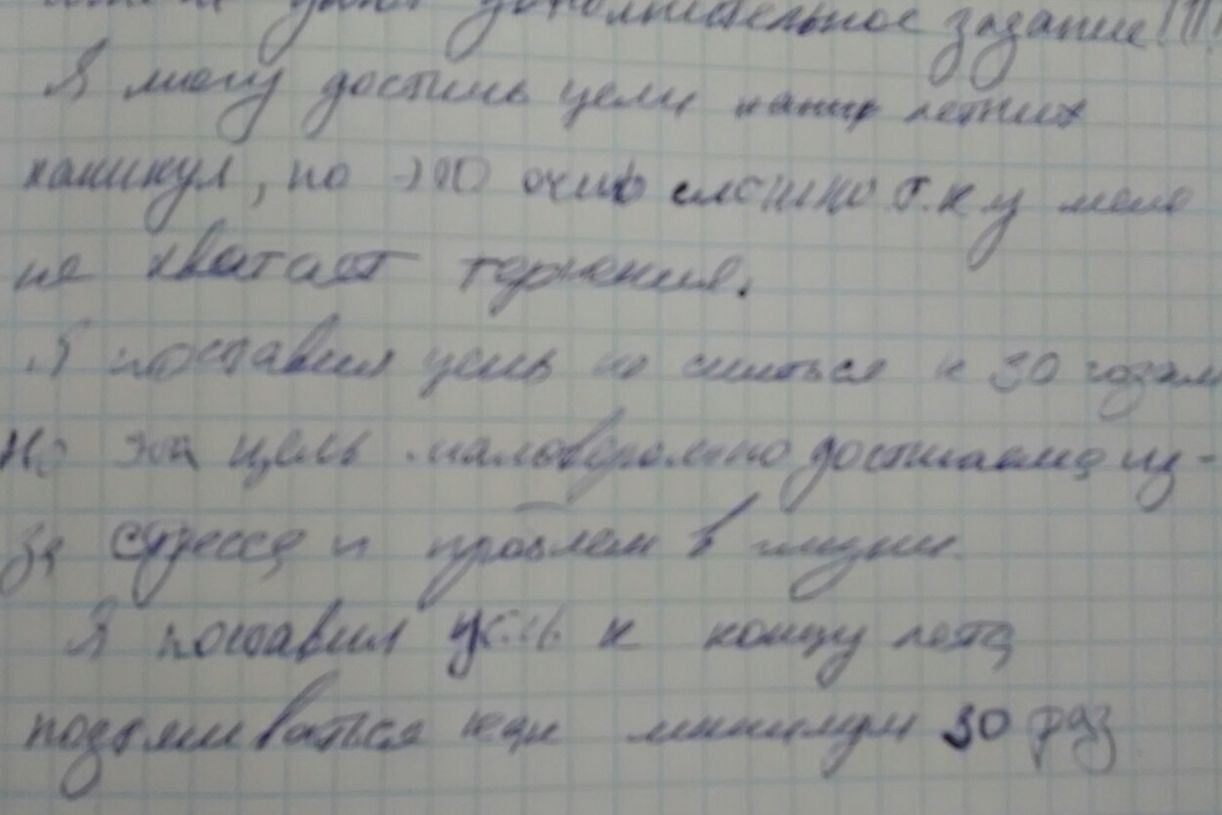 дополнительное задание!!!!
Я могу достичь цели летних
каникул, но это очень сложно т.к у меня
не хватает терпения.
Я поставил цель не спиться к 30 годам
Но эта цель маловероятно достигаема из-
за стресса и проблем в жизни
Я поставил цель к концу лета
подтягиваться как минимум 30 раз